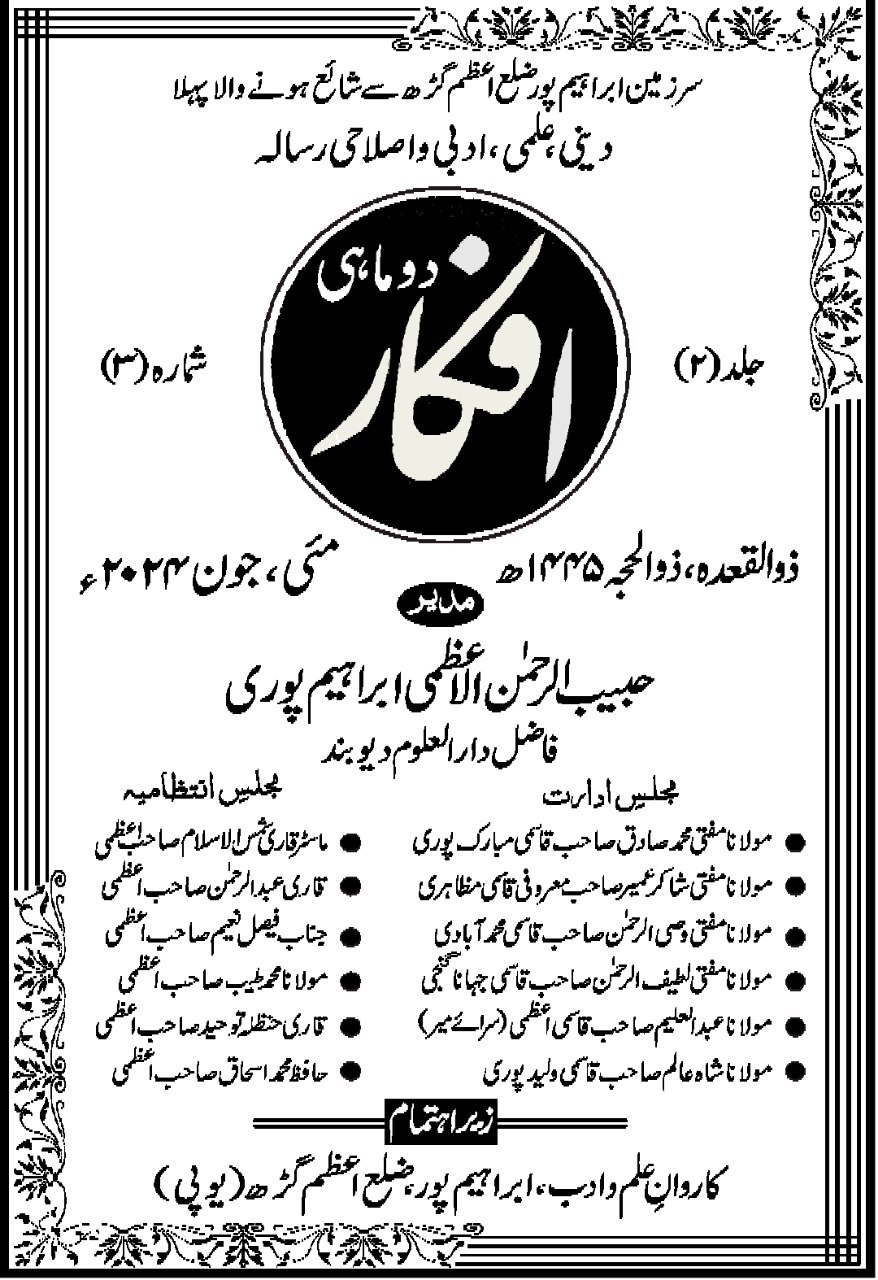 سرزمین ابراہیم پور ضلع اعظم گڑھ سے شائع ہونے والا پہلا
دینی، علمی، ادبی و اصلاحی رسالہ
دو ماہی
افکار
جلد (۲)
شمارہ (۳)
ذوالقعدہ، ذوالحجہ ۱۴۴۵ھ
مئی، جون ۲۰۲۴ء
مدیر
حبیب الرحمٰن الاعظمی ابراہیم پوری
فاضل دارالعلوم دیوبند
مجلسِ ادارت
● مولانا مفتی محمد صادق صاحب قاسمی مبارک پوری
● مولانا مفتی شاکر عمیر صاحب معروفی قاسمی مظاہری
● مولانا مفتی وصی الرحمٰن صاحب قاسمی محمد آبادی
● مولانا مفتی لطیف الرحمٰن صاحب قاسمی جہانا گنجی
● مولانا عبدالعلیم صاحب قاسمی اعظمی (سرائے میر)
● مولانا شاہ عالم صاحب قاسمی ولید پوری
مجلسِ انتظامیہ
● ماسٹر قاری شمس الاسلام صاحب اعظمی
● قاری عبدالرحمٰن صاحب اعظمی
● جناب فیصل نعیم صاحب اعظمی
● مولانا محمد طیب صاحب اعظمی
● قاری حنظلہ توحید صاحب اعظمی
● حافظ محمد اسحاق صاحب اعظمی
زیر اہتمام
کاروانِ علم و ادب، ابراہیم پور، ضلع اعظم گڑھ (یوپی)